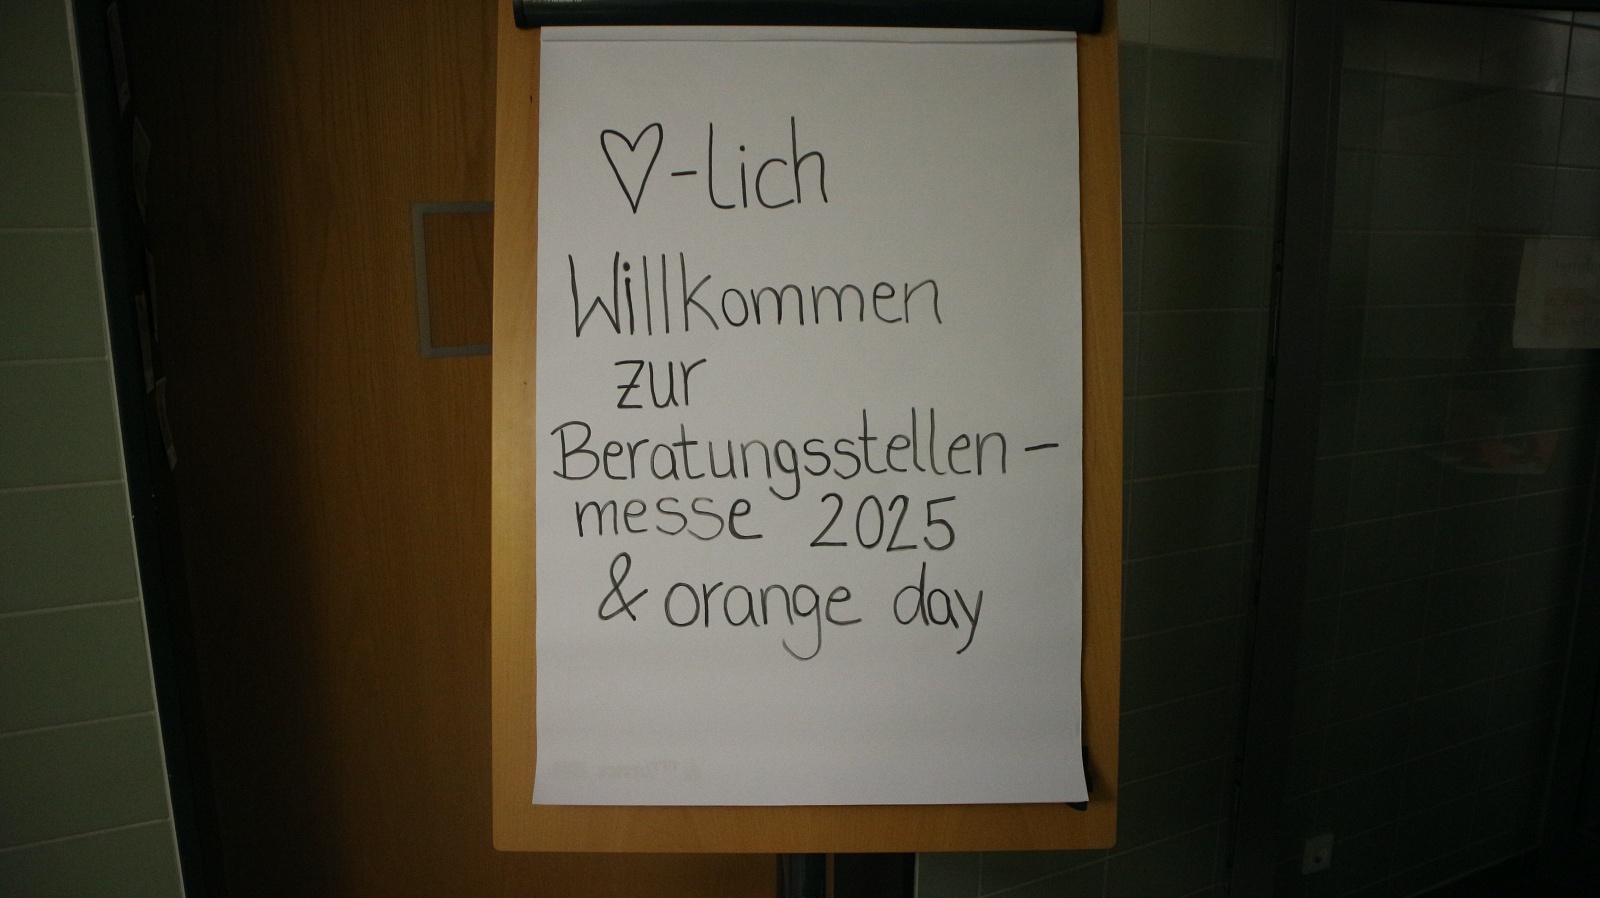 ♡-lich
Willkommen
zur
Beratungsstellen-
messe 2025
& orange day